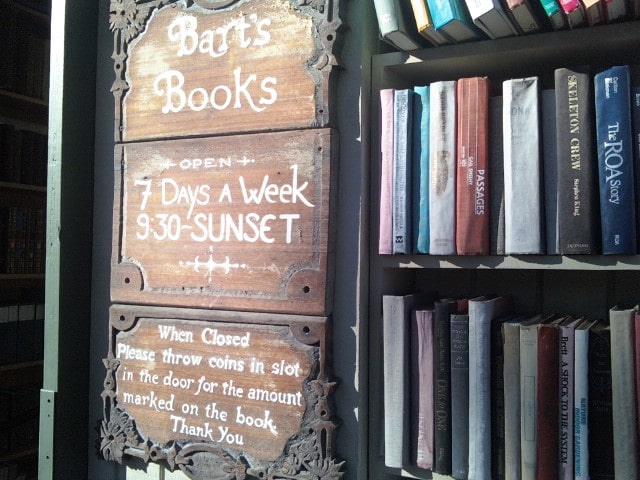 Bart's
Books
OPEN
7 DAYS A WEEK
9:30-SUNSET
When Closed
Please throw coins in slot
in the door for the amount
marked on the book.
Thank You
GAIL SHEEHY
PASSAGES
SKELETON CREW
Stephen King
The ROA Story
A SHOCK TO THE SYSTEM